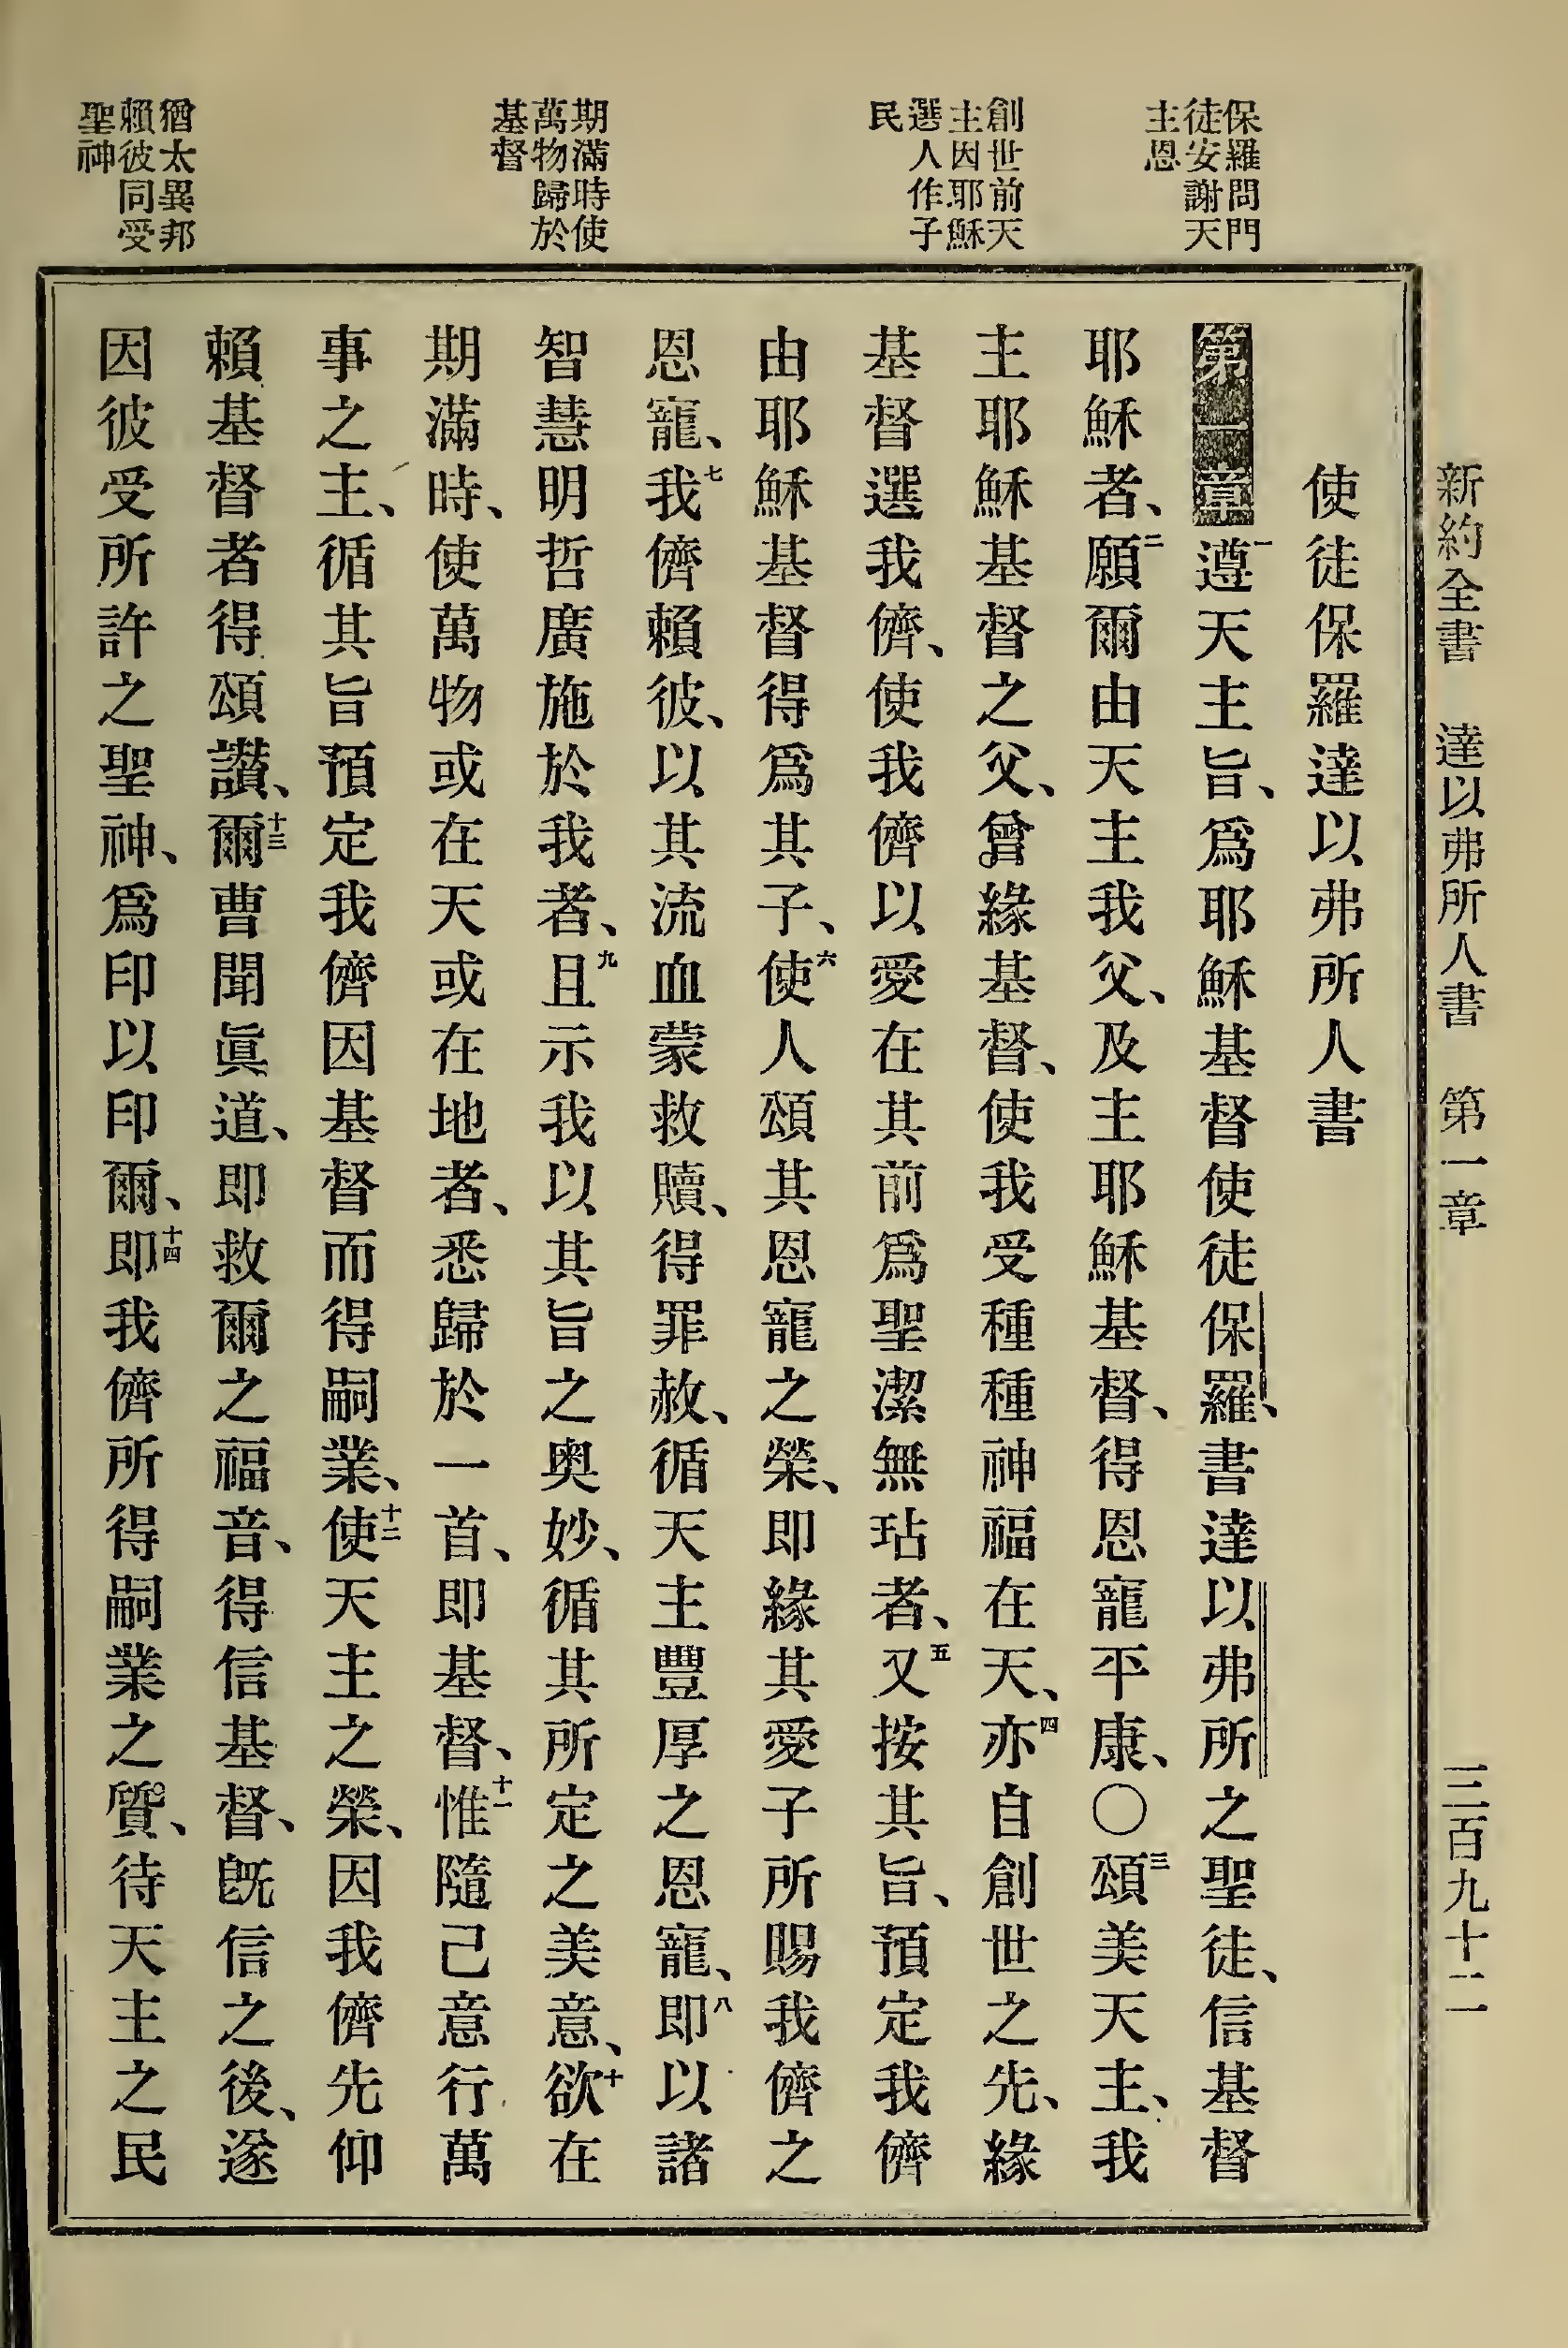 新約全書 達以弗所人書 第一章 三百九十二
保羅問門
徒安謝天
主恩
創世前天
主因耶穌
選人作子
民
期滿時使
萬物歸於
基督
猶太異邦
賴彼同受
聖神
使徒保羅達以弗所人書
第一章 一遵天主旨、爲耶穌基督使徒保羅、書達以弗所之聖徒、信基督
耶穌者、二願爾由天主我父、及主耶穌基督、得恩寵平康、〇三頌美天主、我
主耶穌基督之父、曾緣基督、使我受種種神福在天、四亦自創世之先、緣
基督選我儕、使我儕以愛在其前爲聖潔無玷者、五又按其旨、預定我儕
由耶穌基督得爲其子、六使人頌其恩寵之榮、即緣其愛子所賜我儕之
恩寵、七我儕賴彼、以其流血蒙救贖、得罪赦、循天主豐厚之恩寵、八即以諸
智慧明哲廣施於我者、九且示我以其旨之奧妙、循其所定之美意、十欲在
期滿時、使萬物或在天或在地者、悉歸於一首、即基督、十一惟隨己意行萬
事之主、循其旨預定我儕因基督而得嗣業、十二使天主之榮、因我儕先仰
賴基督者得頌讚、十三爾曹聞眞道、即救爾之福音、得信基督、旣信之後、遂
因彼受所許之聖神、爲印以印爾、十四即我儕所得嗣業之質、待天主之民